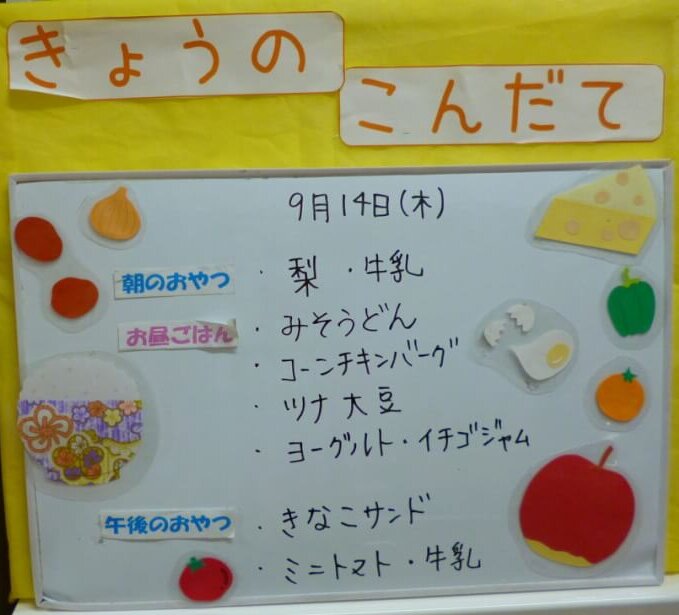 きょうの
こんだて
9月14日(木)
朝のおやつ ・梨 ・牛乳
お昼ごはん ・みそうどん
・コーンチキンバーグ
・ツナ大豆
・ヨーグルト・イチゴジャム
午後のおやつ ・きなこサンド
・ミニトマト・牛乳